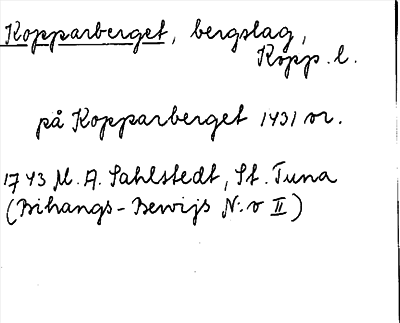 Kopparberget, bergslag,
Kopp. l.
på Kopparberget 1431 or.
1743 M. A. Sahlstedt, St. Tuna
(Bihangs-Bewijs N.o II)